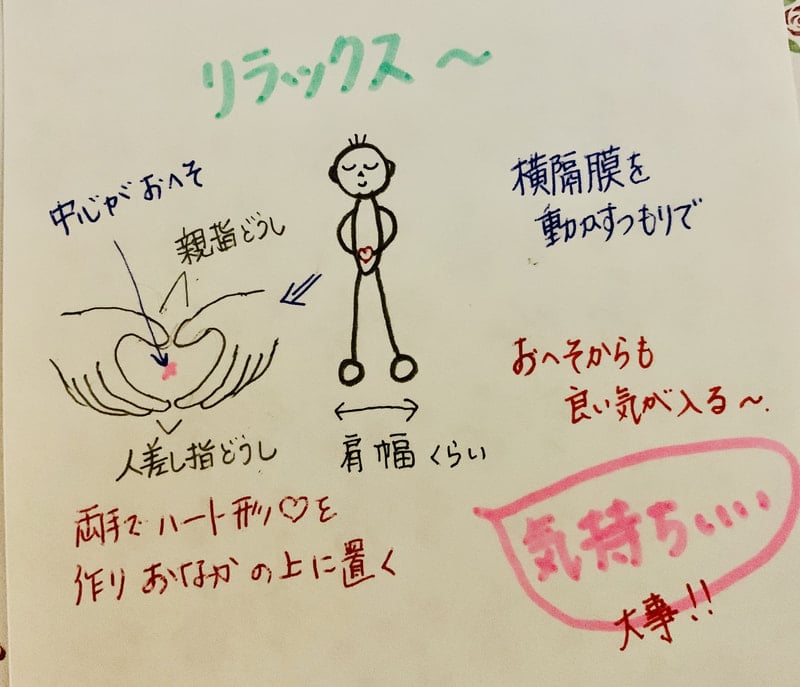 リラックス〜
中心がおへそ
親指どうし
人差し指どうし
肩幅くらい
両手でハート形♡を
作りおなかの上に置く
横隔膜を
動かすつもりで
おへそからも
良い気が入る〜.
気持ちいい
大事!!